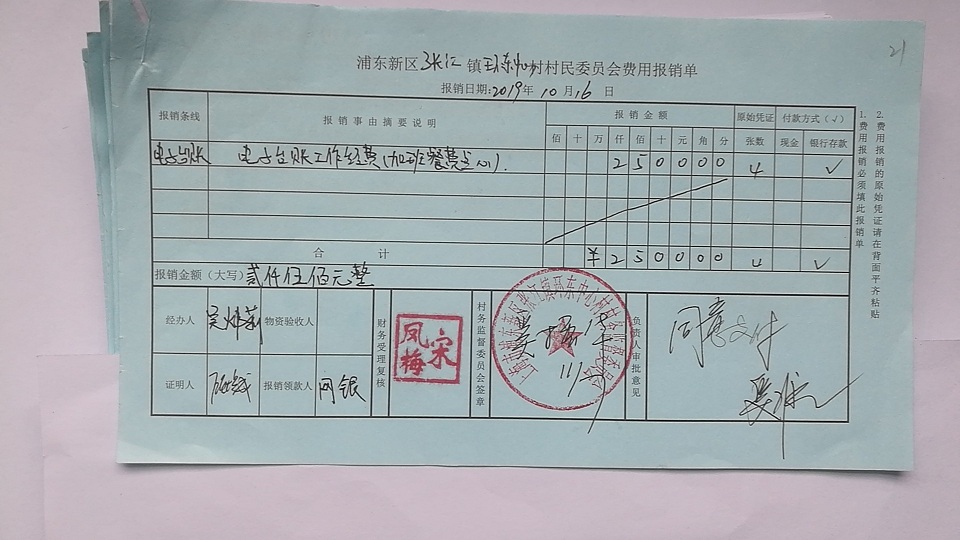 21
浦东新区张江镇环东中心村村民委员会费用报销单
报销日期:2019年10月16日
报销条线 报销事由摘要说明 报销金额 原始凭证 付款方式(√)
佰 十 万 仟 佰 十 元 角 分 张数 现金 银行存款
电子台账 电子台账工作经费(加班餐费 2 5 0 0 0 0 4 √
合计 ¥ 2 5 0 0 0 0 4 √
报销金额(大写) 贰仟伍佰元整
经办人 物资验收人
证明人 报销领款人 网银
财务受理复核
宋凤梅
村务监督委员会签章
11/
负责人审批意见
同意支付
1.费用报销必须填此报销单
2.费用报销的原始凭证请在背面平齐粘贴